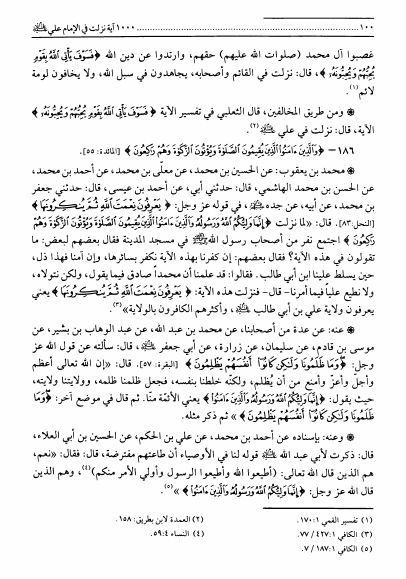 ١٠٠ ................ ١٠٠٠ آية نزلت في الإمام علي
غصبوا آل محمد (صلوات الله عليهم) حقهم، وارتدوا عن دين الله ﴿فَسَوْفَ يَأْتِي اللَّهُ بِقَوْمٍ
يُحِبُّهُمْ وَيُحِبُّونَهُ﴾، قال: نزلت في القائم وأصحابه، يجاهدون في سبيل الله، ولا يخافون لومة
لائم(١).
❋ ومن طريق المخالفين، قال الثعلبي في تفسير الآية ﴿فَسَوْفَ يَأْتِي اللَّهُ بِقَوْمٍ يُحِبُّهُمْ وَيُحِبُّونَهُ﴾
الآية، قال: نزلت في علي(٢).
١٨٦- ﴿وَالَّذِينَ ءَامَنُوا الَّذِينَ يُقِيمُونَ الصَّلَوٰةَ وَيُؤْتُونَ الزَّكَوٰةَ وَهُمْ رَاكِعُونَ﴾ [المائدة: ٥٥].
❋ محمد بن يعقوب: عن الحسين بن محمد، عن معلّى بن محمد، عن أحمد بن محمد،
عن الحسن بن محمد الهاشمي، قال: حدثني أبي، عن أحمد بن عيسى، قال: حدثني جعفر
بن محمد، عن أبيه، عن جده، في قوله عز وجل: ﴿يَعْرِفُونَ نِعْمَتَ اللَّهِ ثُمَّ يُنكِرُونَهَا﴾
[النحل: ٨٣]. قال: «لما نزلت ﴿إِنَّمَا وَلِيُّكُمُ اللَّهُ وَرَسُولُهُ وَالَّذِينَ ءَامَنُوا الَّذِينَ يُقِيمُونَ الصَّلَوٰةَ وَيُؤْتُونَ الزَّكَوٰةَ وَهُمْ
رَاكِعُونَ﴾ اجتمع نفر من أصحاب رسول الله في مسجد المدينة فقال بعضهم لبعض: ما
تقولون في هذه الآية؟ فقال بعضهم: إن كفرنا بهذه الآية نكفر بسائرها، وإن آمنا فهذا ذل،
حين يسلط علينا ابن أبي طالب. فقالوا: قد علمنا أن محمداً صادق فيما يقول، ولكن نتولاه،
ولا نطيع علياً فيما أمرنا- قال- فنزلت هذه الآية: ﴿يَعْرِفُونَ نِعْمَتَ اللَّهِ ثُمَّ يُنكِرُونَهَا﴾ يعني
يعرفون ولاية علي بن أبي طالب، وأكثرهم الكافرون بالولاية»(٣).
❋ عنه: عن عدة من أصحابنا، عن محمد بن عبد الله، عن عبد الوهاب بن بشير، عن
موسى بن قادم، عن سليمان، عن زرارة، عن أبي جعفر، قال: سألته عن قول الله عز
وجل: ﴿وَمَا ظَلَمُونَا وَلَكِن كَانُوا أَنفُسَهُمْ يَظْلِمُونَ﴾ [البقرة: ٥٧]. قال: «إن الله تعالى أعظم
وأجل وأعزّ وأمنع من أن يُظلم، ولكنّه خلطنا بنفسه، فجعل ظلمنا ظلمه، وولايتنا ولايته،
حيث يقول: ﴿إِنَّمَا وَلِيُّكُمُ اللَّهُ وَرَسُولُهُ وَالَّذِينَ ءَامَنُوا﴾ يعني الأئمّة منّا. ثم قال في موضع آخر: ﴿وَمَا
ظَلَمُونَا وَلَكِن كَانُوا أَنفُسَهُمْ يَظْلِمُونَ﴾» ثم ذكر مثله.
❋ وعنه: بإسناده عن أحمد بن محمد، عن علي بن الحكم، عن الحسين بن أبي العلاء،
قال: ذكرت لأبي عبد الله قوله لنا في الأوصياء أن طاعتهم مفترضة، قال: فقال: «نعم،
هم الذين قال الله تعالى: (أطيعوا الله وأطيعوا الرسول وأولي الأمر منكم)(٤)، وهم الذين
قال الله عز وجل: ﴿إِنَّمَا وَلِيُّكُمُ اللَّهُ وَرَسُولُهُ وَالَّذِينَ ءَامَنُوا﴾»(٥).
(١) تفسير القمي ١: ١٧٠. (٢) العمدة لابن بطريق: ١٥٨.
(٣) الكافي ١: ٤٢٧ / ٧٧. (٤) النساء ٤: ٥٩.
(٥) الكافي ١: ١٨٧ / ٧.